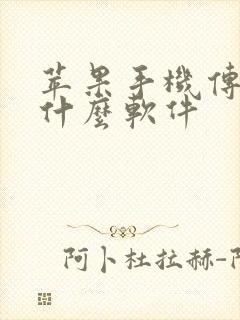 苹果手機傳
什麼軟件
阿卜杜拉赫-阿